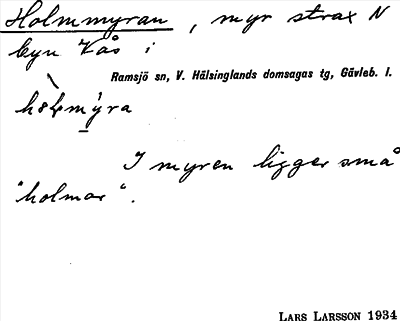 Holmmyran, myr strax N
byn Kås i
Ramsjö sn, V. Hälsinglands domsagas tg, Gävleb. l.
I myren ligger små
"holmar".
LARS LARSSON 1934